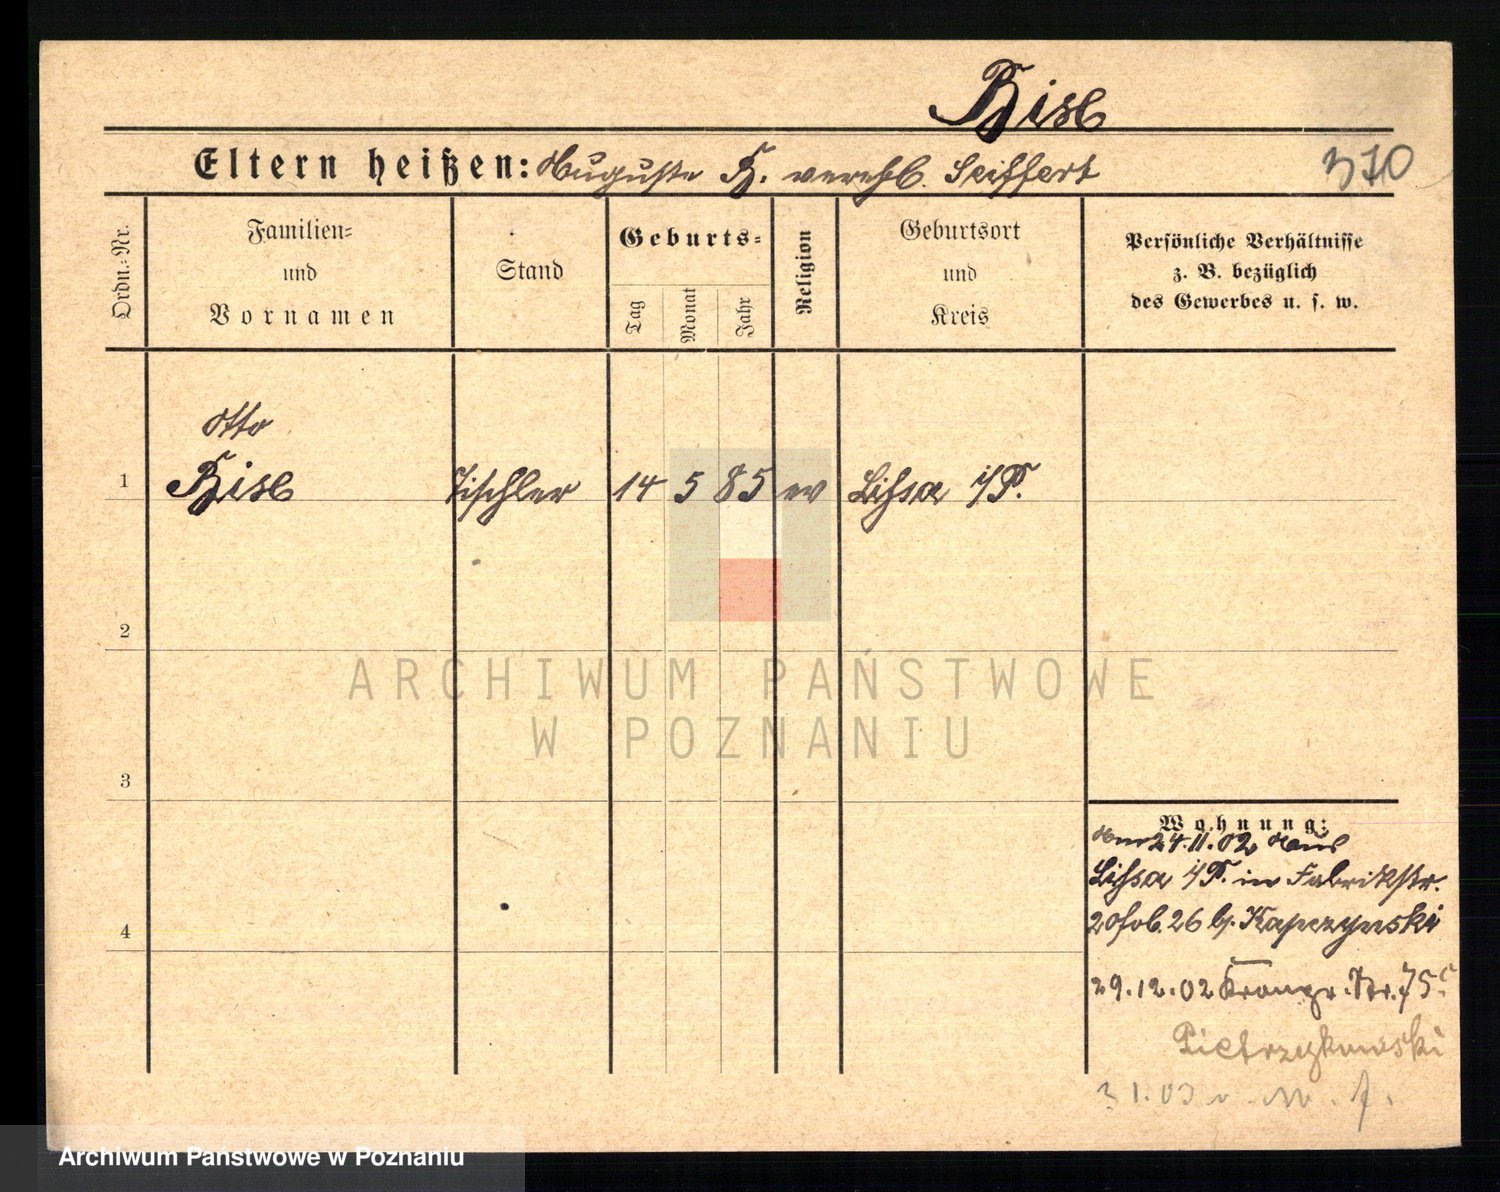 Bisl
Eltern heißen: Auguste B. verehl. Seiffert
370
Ordn.-Nr.
Familien-
und
Vornamen
Stand
Geburts-
Tag
Monat
Jahr
Religion
Geburtsort
und
Kreis
Persönliche Verhältnisse
z. B. bezüglich
des Gewerbes u. s. w.
Otto
1 Bisl Tischler 14 5 85 ev Lissa i/P.
2
3
4
ARCHIWUM PAŃSTWOWE
W POZNANIU
Wohnung:
24.11.02 aus
Lissa i/P. in Fabrikstr.
26 b. Kapczynski
29.12.02 Kronpr. Str. 75
Pietrzykowski
Archiwum Państwowe w Poznaniu